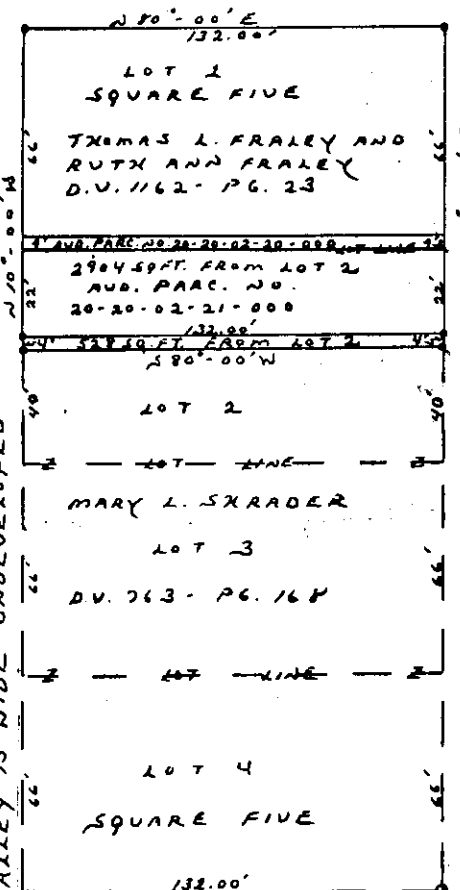 N 80°-00' E
132.00'
LOT 1
SQUARE FIVE
66'
66'
THOMAS L. FRALEY AND
RUTH ANN FRALEY
D.V. 1162 - PG. 23
N 10°-00' W
4' AUD. PARC. NO. 20-20-02-20-000 LOT LINE
2904 SQ FT. FROM LOT 2
AUD. PARC. NO.
20-20-02-21-000
22'
22'
132.00'
4' 528 SQ. FT. FROM LOT 2 4'
S 80°-00' W
40'
40'
LOT 2
Z LOT LINE Z
MARY L. SHRADER
LOT 3
66'
66'
D.V. 763 - PG. 168
Z LOT LINE Z
LOT 4
66'
66'
SQUARE FIVE
132.00'
ALLEY 15 WIDE UNDEVELOPED